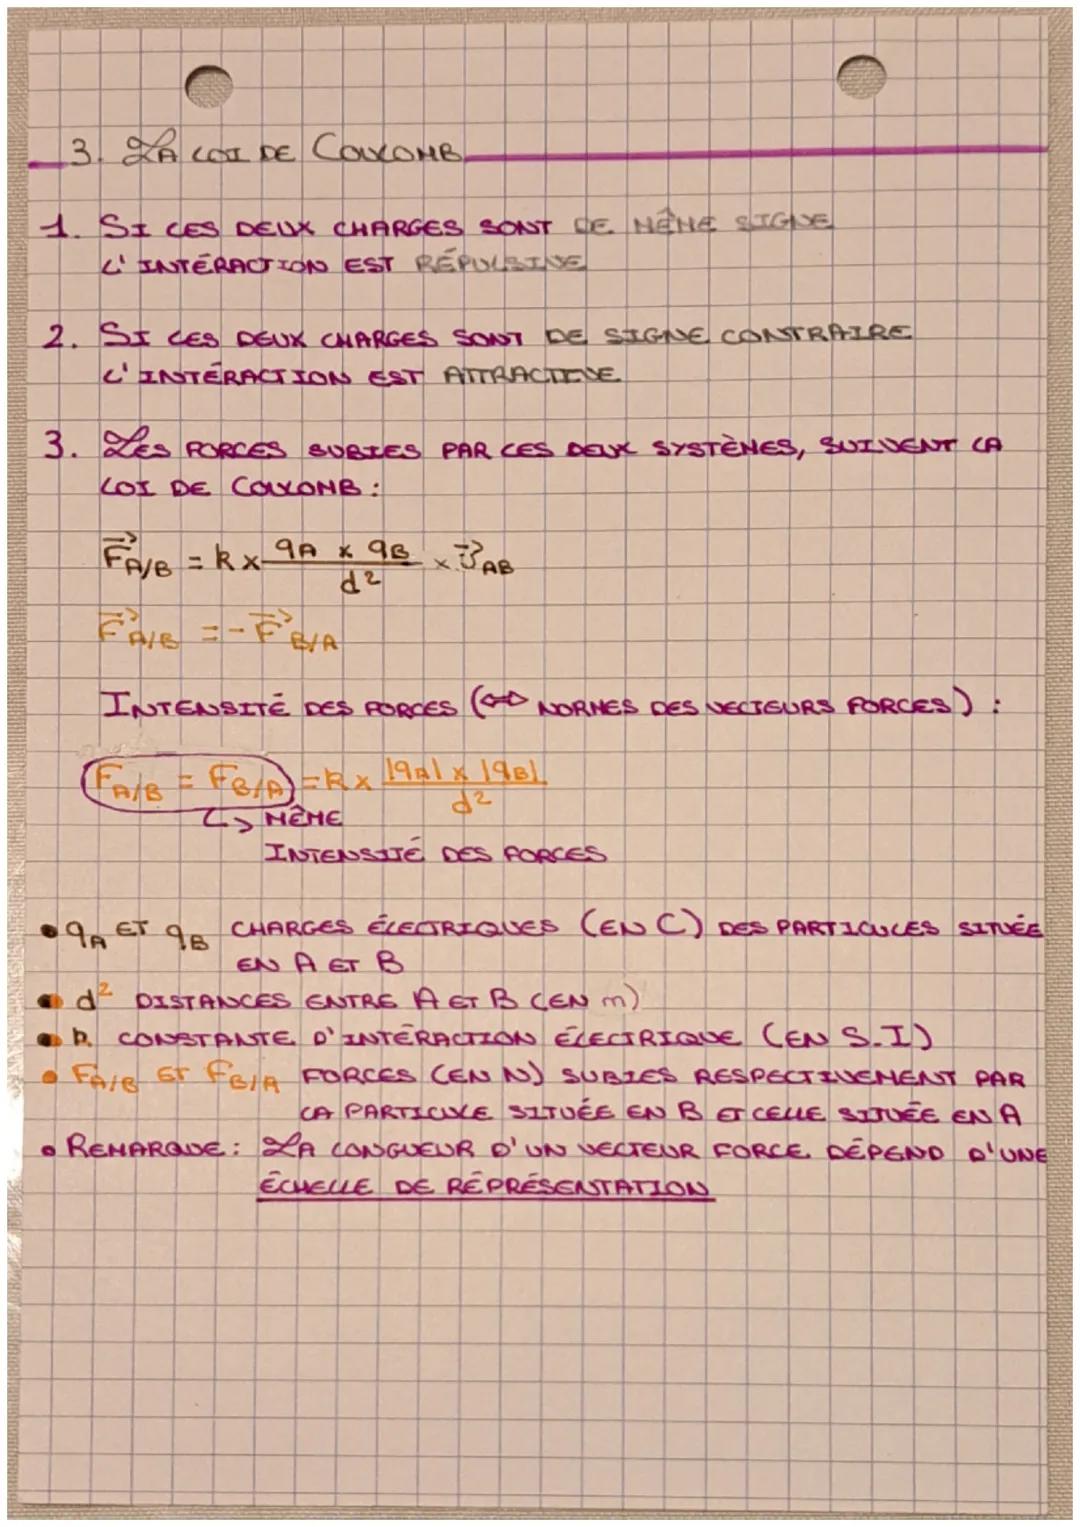 3. LA LOI DE COULOMB
1. SI CES DEUX CHARGES SONT DE MÊME SIGNE
L'INTÉRACTION EST RÉPULSIVE
2. SI CES DEUX CHARGES SONT DE SIGNE CONTRAIRE
L'INTÉRACTION EST ATTRACTIVE
3. LES FORCES SUBIES PAR CES DEUX SYSTÈMES, SUIVENT LA
LOI DE COULOMB :
F⃗A/B = k × qA × qB / d² × U⃗AB
F⃗A/B = - F⃗B/A
INTENSITÉ DES FORCES (⇔ NORMES DES VECTEURS FORCES) :
FA/B = FB/A = k × |qA| × |qB| / d²
↳ MÊME
INTENSITÉ DES FORCES
• qA ET qB CHARGES ÉLECTRIQUES (EN C) DES PARTICULES SITUÉE
EN A ET B
• d² DISTANCES ENTRE A ET B (EN m)
• k CONSTANTE D'INTÉRACTION ÉLECTRIQUE (EN S.I)
• FA/B ET FB/A FORCES (EN N) SUBIES RESPECTIVEMENT PAR
LA PARTICULE SITUÉE EN B ET CELLE SITUÉE EN A
• REMARQUE : LA LONGUEUR D'UN VECTEUR FORCE DÉPEND D'UNE
ÉCHELLE DE RÉPRÉSENTATION